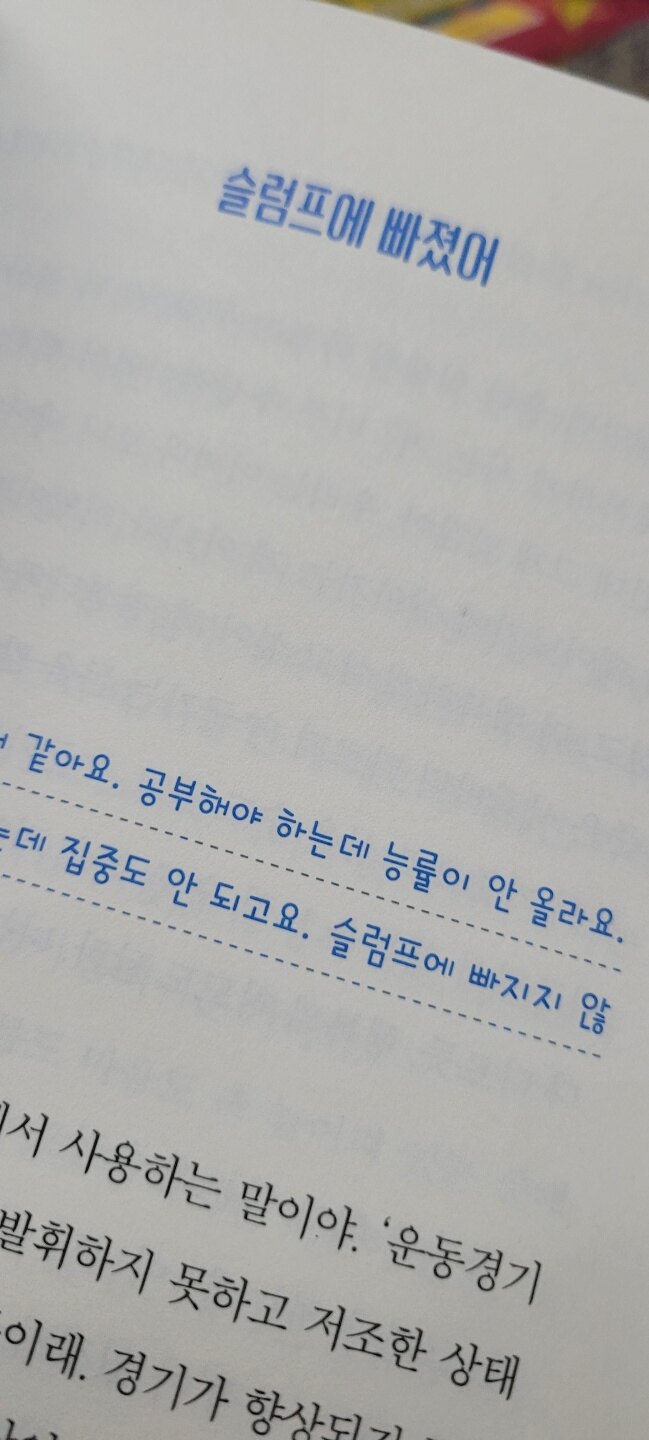 슬럼프에 빠졌어
같아요. 공부해야 하는데 능률이 안 올라요.
집중도 안 되고요. 슬럼프에 빠지지 않
사용하는 말이야. ‘운동경기
발휘하지 못하고 저조한 상태
경기가